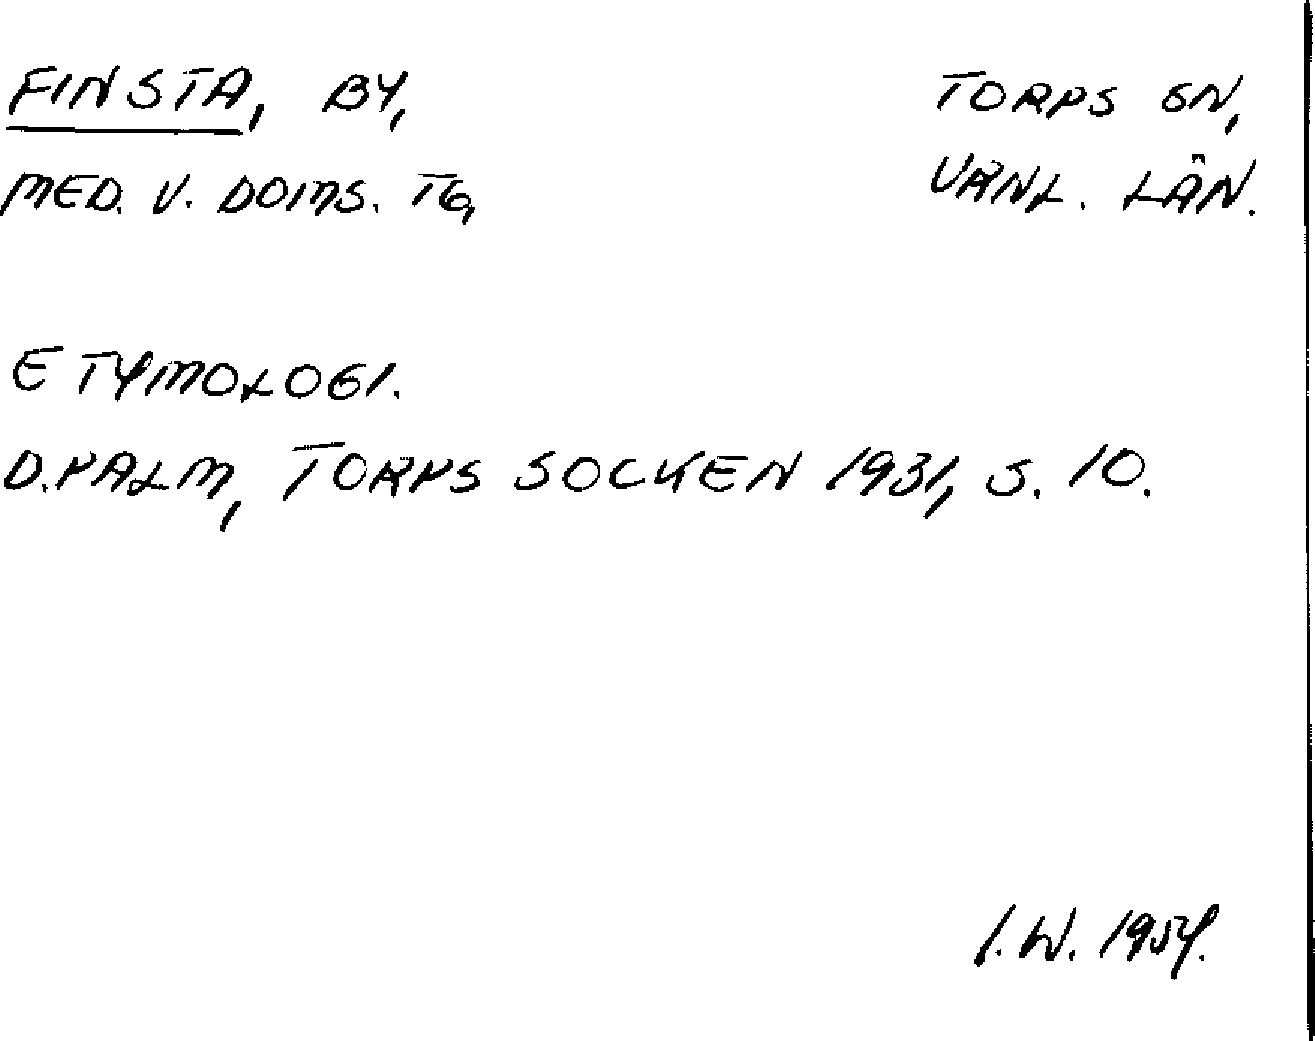 FINSTA, BY,
TORPS SN,
MED. V. DOMS. TG,
VÄNL. LÄN.
ETYMOLOGI.
D. PALM, TORPS SOCKEN 1931, S. 10.
I.W. 1954.